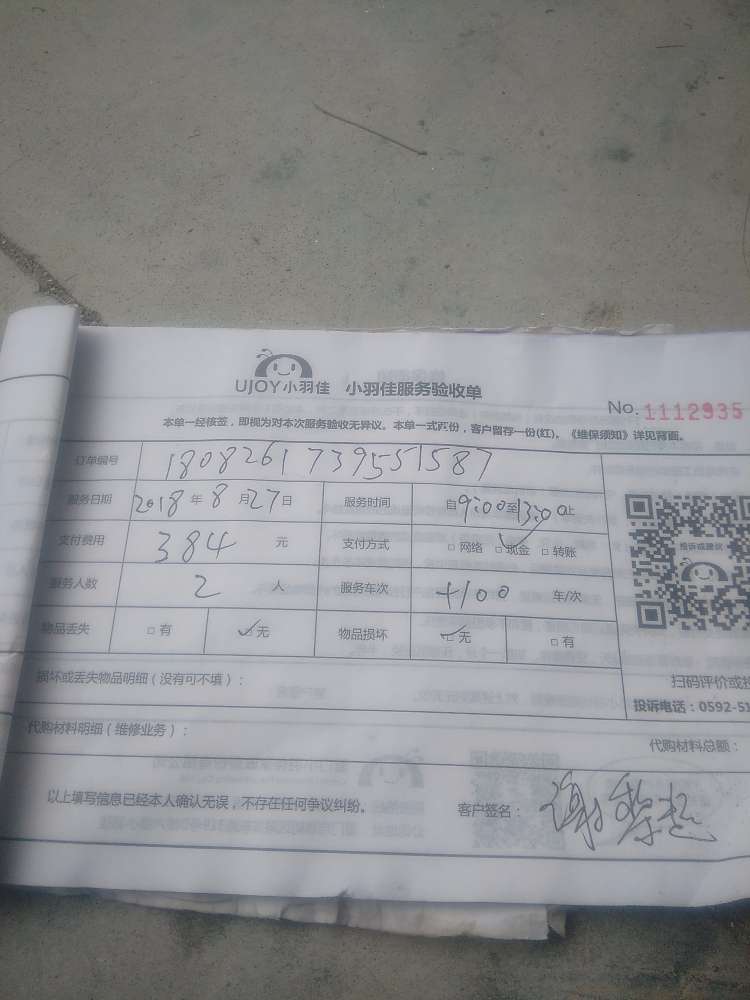 UJOY小羽佳 小羽佳服务验收单
No. 1112935
本单一经核签，即视为对本次服务验收无异议。本单一式两份，客户留存一份(红)。《维保须知》详见背面。
订单编号 1808261739551587
服务日期 2018年8月27日 服务时间 自9:00至13:00止
支付费用 384 元 支付方式 □网络 ☑现金 □转账
服务人数 2 人 服务车次 +100 车/次
物品丢失 □有 ☑无 物品损坏 ☑无 □有
投诉或建议
损坏或丢失物品明细（没有可不填）：
扫码评价或投
投诉电话：0592-51
代购材料明细（维修业务）：
代购材料总额：
以上填写信息已经本人确认无误，不存在任何争议纠纷。 客户签名： 谢